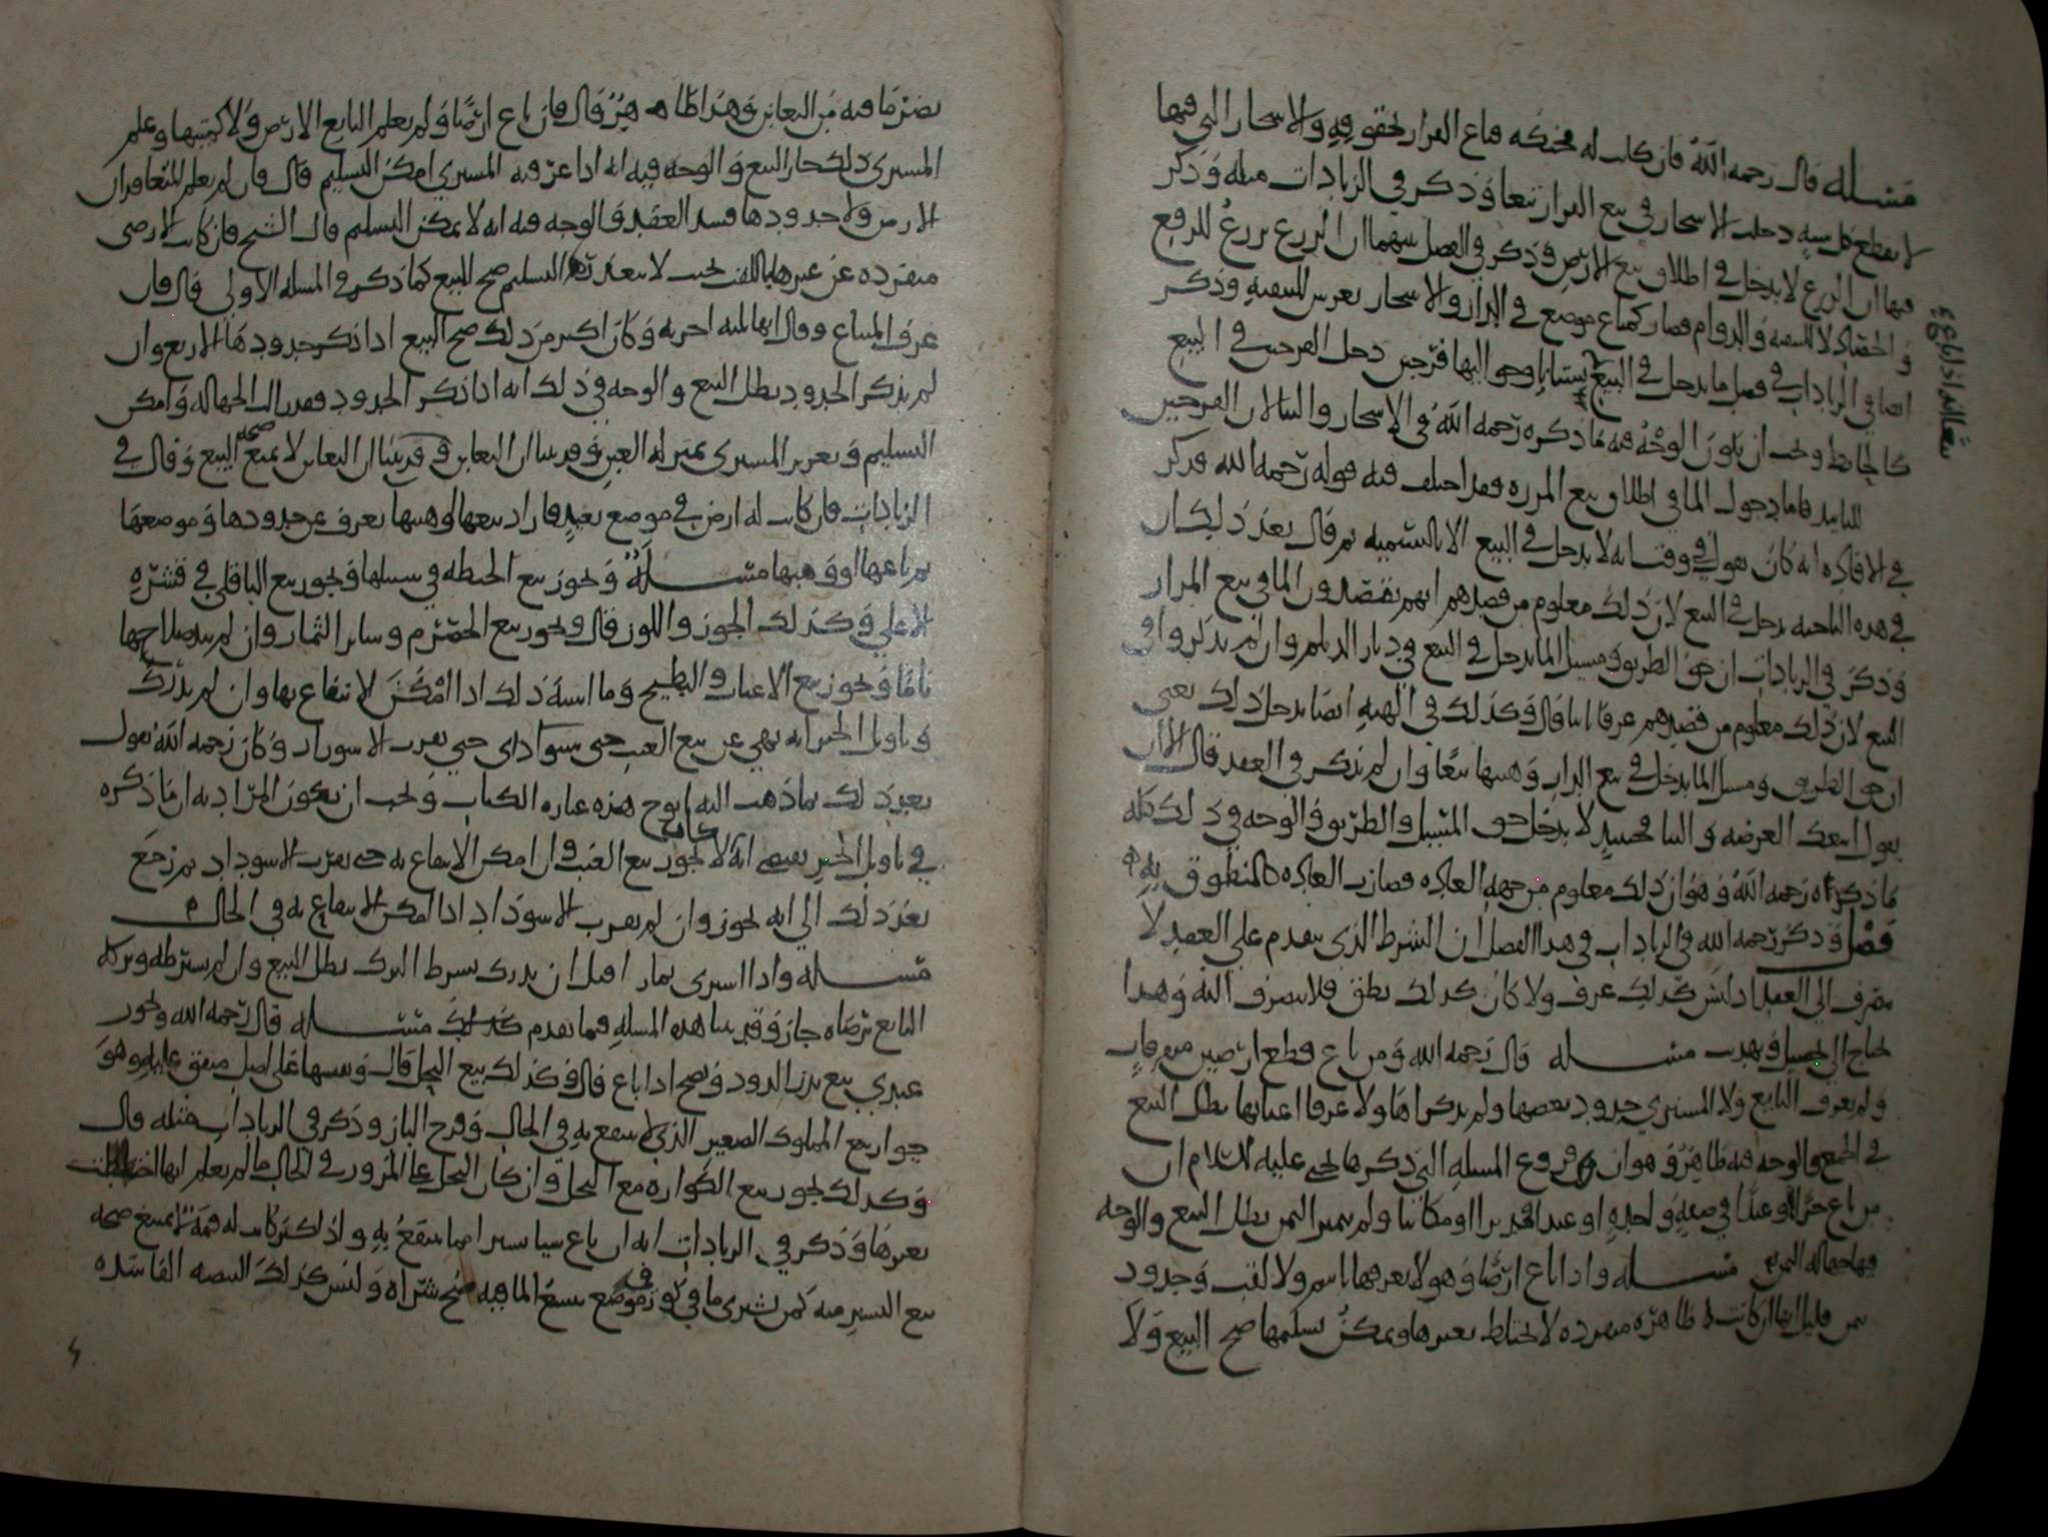 مسله قال رحمه الله فان كانت له فباع الدار بحقوقه والاشجار التي فيها
لا يقطع كل سنة دخلت الاشجار في بيع الدار تبعا وذكر في الزيادات مثله وذكر
فيها ان الزرع لا يدخل في اطلاق بيع الارض وذكر في الفصل بينهما ان الزرع يزرع للرفع
والحصاد لا للتبقية والدوام فصار كمتاع موضوع في الدار والاشجار يغرس للتبقية وذكر
ايضا في الزيادات في فصل ما يدخل في البيع بستانا دخل في البيع
كالحايط ويجب ان يكون الوجه فيه ما ذكره رحمه الله في الاشجار والبنا لان
للتابيد فاما دخول الما في اطلاق بيع المزرعة فقد اختلف فيه قوله رحمه الله فذكر
في الافادة انه كان يقول في وقت انه لا يدخل في البيع الا بالتسمية ثم قال بعد ذلك ان
في هذه الناحية يدخل في البيع لان ذلك معلوم من قصدهم انهم يقصدون الما في بيع المزارع
وذكر في الزيادات ان حق الطريق ومسيل الما يدخل في البيع في ديار الديلم وان لم يذكروا في
البيع لان ذلك معلوم من قصدهم عرفا قال وكذلك في الهبة ايضا يدخل ذلك يعني
ان حق الطريق ومسيل الما يدخل في بيع الدار وهبتها تبعا وان لم يذكر في العقد قال الا ان
يقول ابيعك العرصة والبنا فحينيذ لا يدخل حق المسيل والطريق والوجه في ذلك كله
ما ذكره رحمه الله وهو ان ذلك معلوم من جهة العادة فصارت العادة كالمنطوق به
فصل وذكر رحمه الله في الزيادات في هذا الفصل ان الشرط الذي يتقدم على العقد لا
يصرف الى العقد اذا ليس كذلك عرف ولا كان كذلك نطق فلا يصرف اليه وهذا
يحتاج الى تحصيل وتهذيب مسله قال رحمه الله ومن باع قطع ارضين
ولم يعرف البايع ولا المشتري حدود بعضها ولم يذكراها ولا عرفا اعيانها بطل البيع
في الجميع والوجه فيه ظاهر وهو انه من فروع المسلة التي ذكرها يحيى عليه السلام ان
من باع حرا او عبدا في صفقة واحدة او عبدا او مدبرا او مكاتبا ولم يميز الثمن بطل البيع والوجه
فيها جهالة الثمن مسله واذا باع ارضا وهو لا يعرفها باسم ولا لقب وحدود
ثمن قليل انها ان كانت ظاهرة منفردة لا تختلط بغيرها ويمكن تسليمها صح البيع ولا
تبعا للدار اذا باع
يضر ما فيه من التغابن وهذا ظاهر قال فان باع ارضا ولم يعلم البايع الارض ولا كميتها وعلم
المشتري ذلك جاز البيع والوجه فيه انه اذا عرفه المشتري امكن التسليم قال فان لم يعلم المتعاقدان
الارض ولا حدودها فسد العقد والوجه فيه انه لا يمكن التسليم قال الشيخ فان كانت الارض
منفردة عن غيرها باللقب بحيث لا يتعذر التسليم صح البيع كما ذكر في المسلة الاولى قال فان
عرف المبتاع وقال انها ثلثة اجربة وكان اكثر من ذلك صح البيع اذا ذكر حدودها الاربع وان
لم يذكر الحدود بطل البيع والوجه في ذلك انه اذا ذكر الحدود فقد زالت الجهالة وامكن
التسليم وتغرير المشتري بمنزلة الغبن وقد بينا ان التغابن لا يمنع صحة البيع وقال في
الزيادات فان كانت له ارض في موضع بعيد فاراد بيعها او هبتها يعرف حدودها وموضعها
ثم باعها او وهبها مسله ويجوز بيع الحنطة في سنبلها ويجوز بيع الباقلى في قشره
الاعلى وكذلك الجوز واللوز قال ويجوز بيع الحصرم وساير الثمار وان لم يبد صلاحها
تاما ويجوز بيع الاعناب والبطيخ وما اشبه ذلك اذا امكن الانتفاع بها وان لم يدرك
وتاول الخبر انه نهى عن بيع العنب حتى يسود اي حتى يقرب الاسوداد وكان رحمه الله يقول
بعد ذلك بما ذهب اليه هذه عبارة الكتاب ويجب ان يكون المراد به ان ما ذكره
في تاويل الخبر يقتضي انه لا يجوز بيع العنب وان امكن الانتفاع به حتى يقرب الاسوداد ثم رجع
بعد ذلك الى انه يجوز وان لم يقرب الاسوداد اذا امكن الانتفاع به في الحال
مسله واذا اشترى ثمارا قبل ان يدرك بشرط الترك بطل البيع وان لم يشترطه وتركه
البايع برضاه جاز وقد بينا هذه المسلة فيما تقدم مسله قال رحمه الله ويجوز
عندي بيع بزر الدود ويصح اذا باع قال وكذلك بيع النحل قال وقسها على اصل متفق عليه وهو
جواز بيع المملوك الصغير الذي لا ينتفع به في الحال وفرخ الباز وذكر في الزيادات مثله قال
وكذلك يجوز بيع الكوارة مع النحل وان كان النحل في الحال ما لم يعلم انها اختلطت
بغيرها وذكر في الزيادات انه ان باع شيا يسيرا مما ينتفع به واذا كثر كانت له قيمة لا يمنع صحة
بيع اليسير منه كمن يشتري ما في كوز في موضع يسع الما فيه صح شراه وليس كذلك البيضة الفاسدة